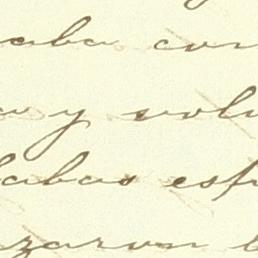 aba con
a y volv
labas esp
zaron l